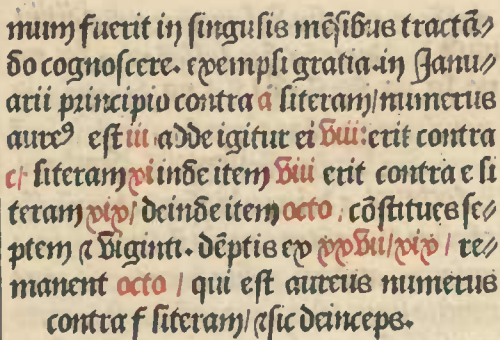 mum fuerit in singulis mēsibus tractā⸗
do cognoscere. exempli gratia.in Janu⸗
arii principio contra a literam/numerus
aureꝰ est iii adde igitur ei viii:erit contra
c/ literam xi inde item viii erit contra e li
teram xix/ deinde item octo/ cōstitues se⸗
ptem ⁊ viginti. dēptis ex xxvii/xix/ re⸗
manent octo / qui est aureus numerus
contra f literam/ ⁊sic deinceps.